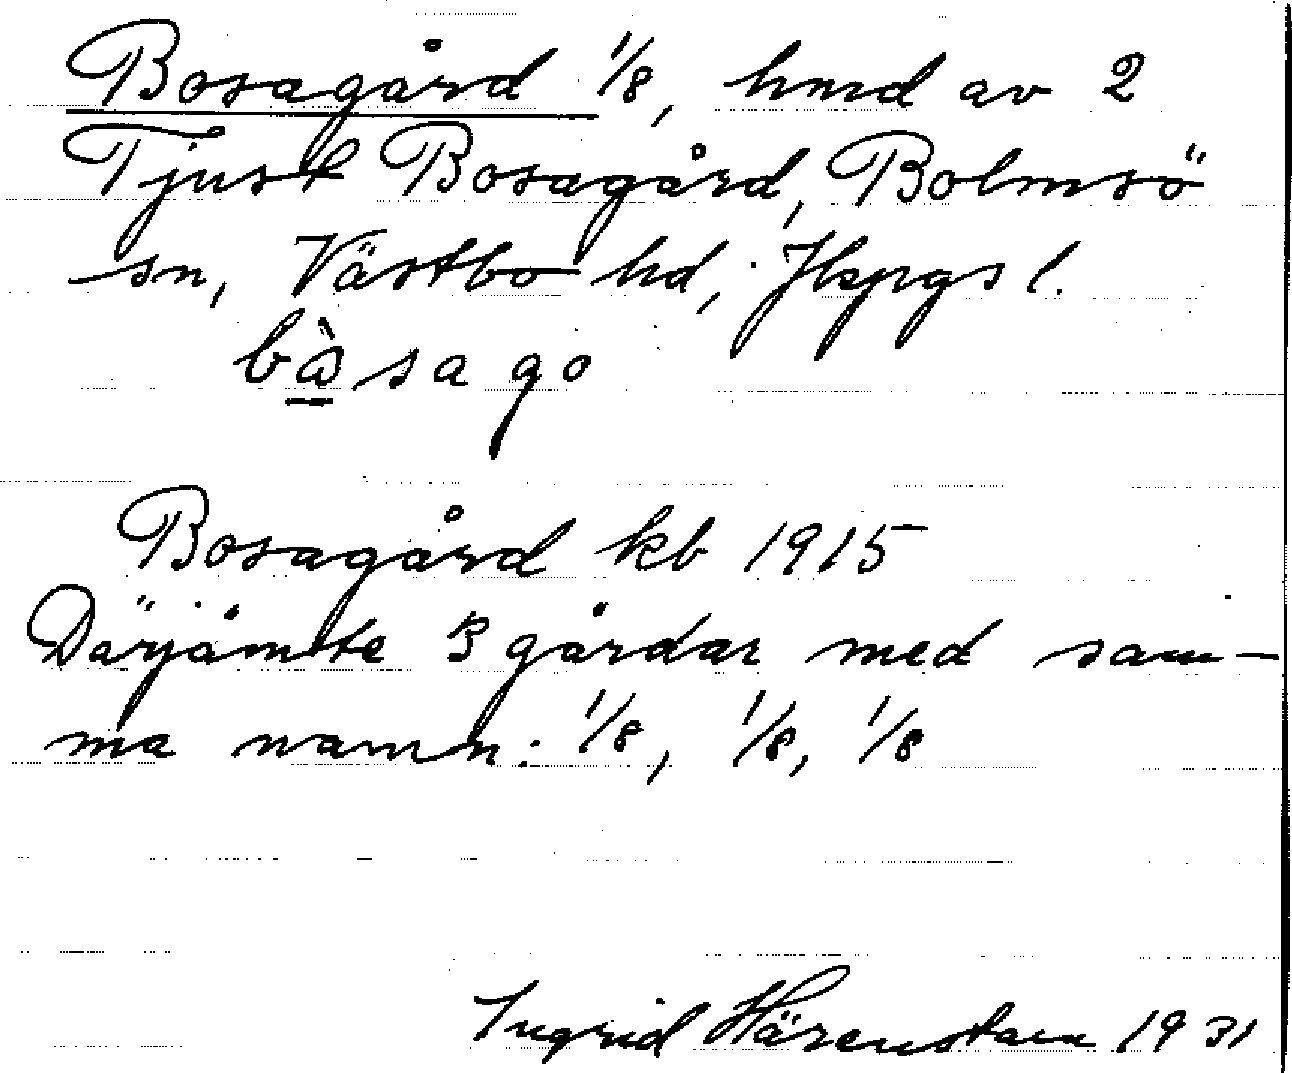 Bosagård 1/8, hmd av 2
Tjust Bosagård, Bolmsö
sn, Västbo hd, Jkpgs l.
bàsago
Bosagård kb 1915
Därjämte 3 gårdar med sam-
ma namn: 1/8, 1/8, 1/8
Ingrid Härenstam 1931